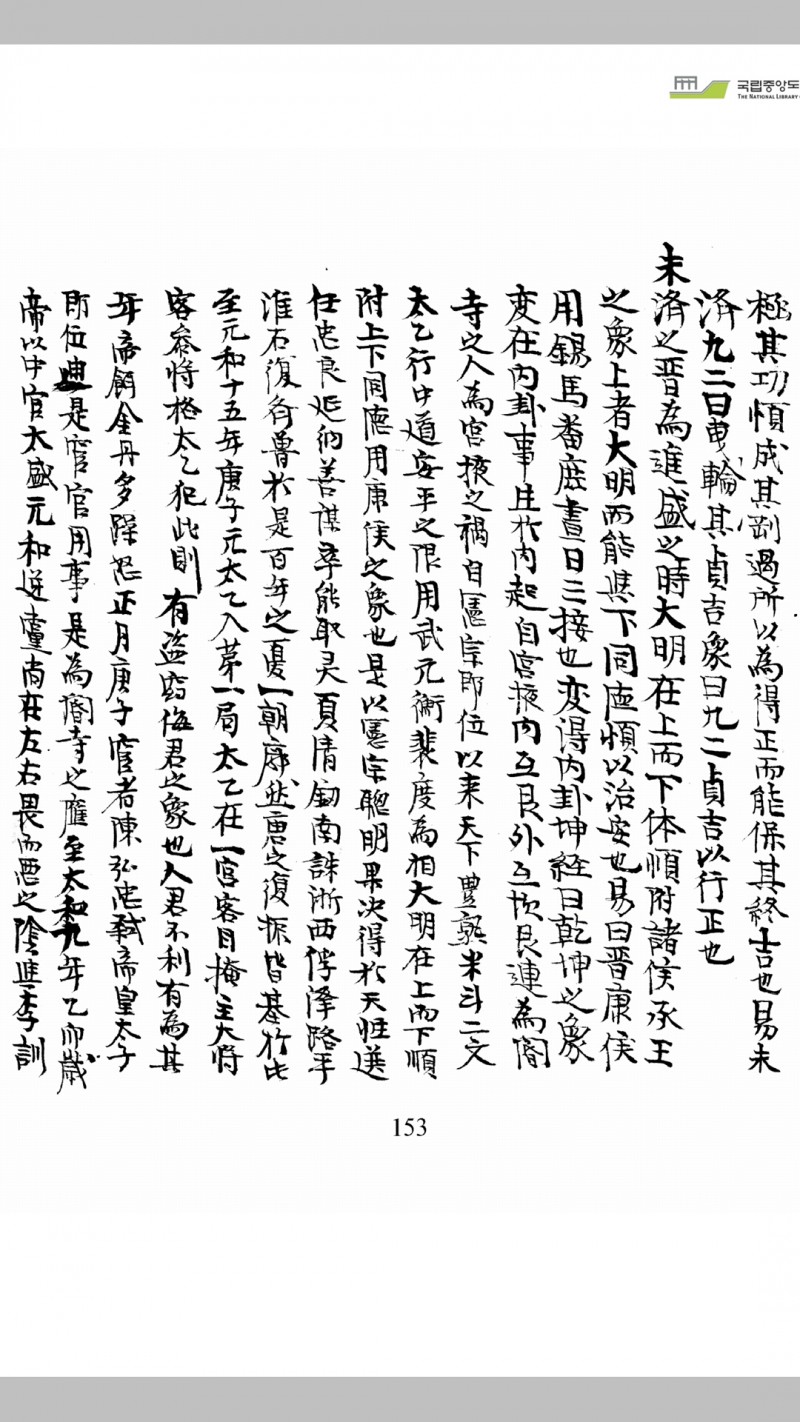 국립중앙도
THE NATIONAL LIBRARY
極其功慎成其剛過所以為得正而能保其終吉也易未
済九二曰曳輪其貞吉象曰九二貞吉以行正也
未済之晋為進盛之時大明在上而下体順附諸侯承王
之象上者大明而能與下同徳順以治安也易曰晋康侯
用錫馬蕃庶晝日三接也变得内卦坤経曰乾坤之象
变在内卦事主於内起自宮掖内互艮外互坎艮連為閽
寺之人為宮掖之禍自憲宗即位以来天下豊熟米斗二文
太乙行中道安平之限用武元衡裴度為相大明在上而下順
附上下同徳用康侯之象也是以憲宗聰明果决得於天性選
任忠良延納善謀卒能取灵夏清劎南誅浙西俘澤路平
淮右復斉魯於是百年之憂一朝廓然唐之復振皆基於此
至元和十五年庚子元太乙入第一局太乙在一宮客目掩主大将
客参将格太乙犯此則有盗臨侮君之象也人君不利有為其
年帝餌金丹多躁怒正月庚子宦者陳弘志弒帝皇太子
即位由是宦官用事是為閽寺之應至太和九年乙卯歳
帝以中官太盛元和逆黨尚在左右畏而悪之陰進李訓
153